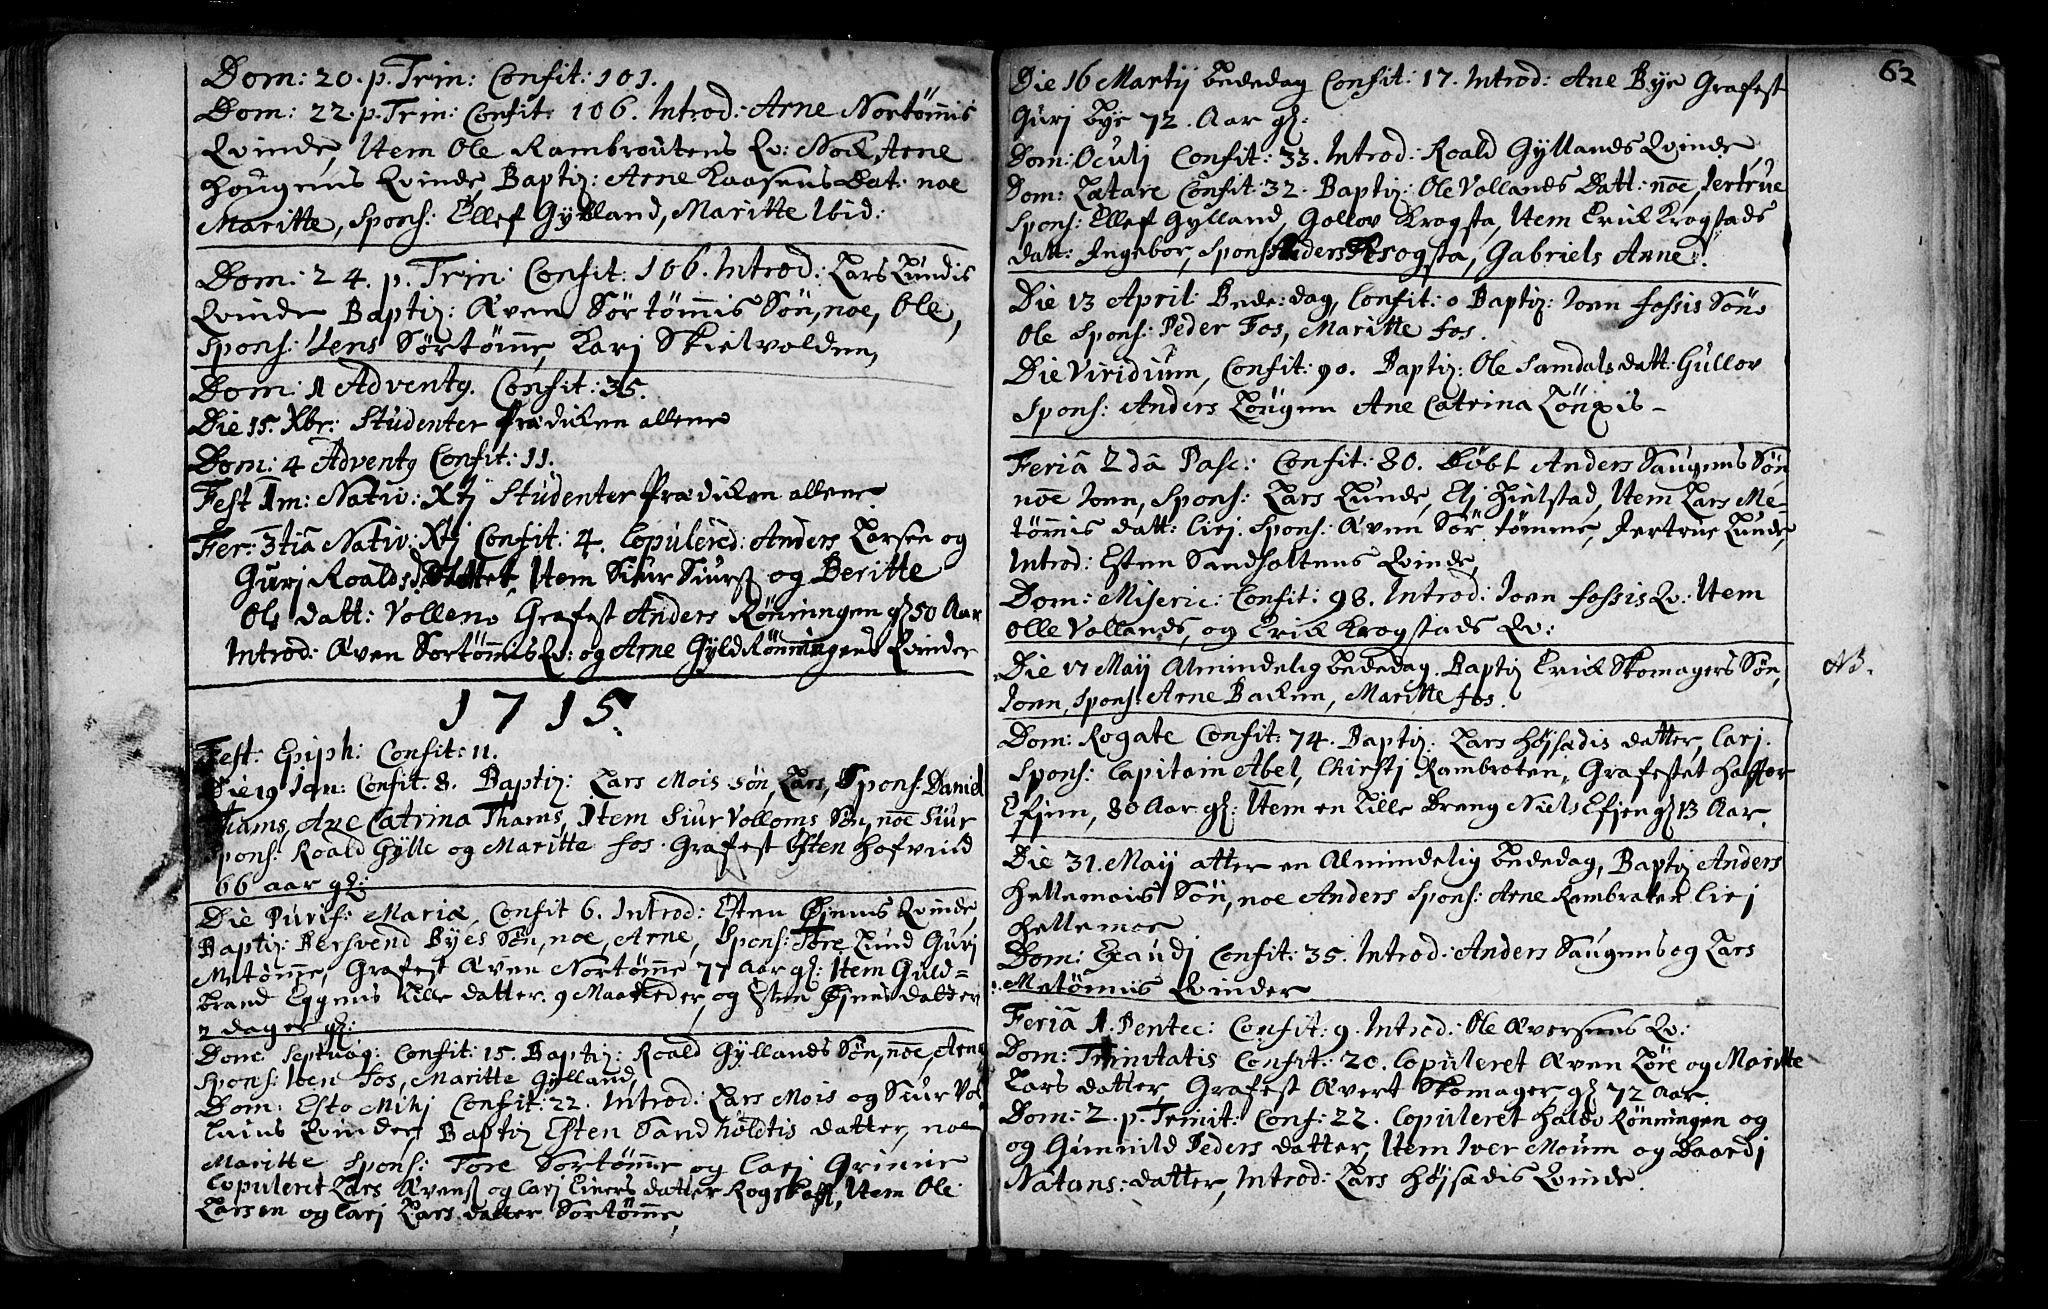 Dom: 20. p. Trin: Confit: 101.
Dom: 22. p. Trin: Confit: 106. Introd: Arne Nortömis
Qvinde, Item Ole Rambroutens Qv: Nock Arne
Hougens Qvinde, Baptiz: Arne Kaasens Dat: noe
Maritte, Spons: Ellef Gylland, Maritte Ibid:
Dom: 24. p. Trin: Confit: 106. Introd: Lars Lundis
Qvinde Baptiz: Æven Sörtömis Sön, noe, Ole,
Spons: Jens Sörtömme, Karj Skielvolden,
Dom: 1 Advent9. Confit: 35.
Die 15. Xbr: Studenter Prædiken allene
Dom: 4 Advent9 Confit: 11.
Fest 1m: Nativ: Xtj Studenter Prædiken allene
Fer: 3tiâ Nativ: Xtj Confit: 4. Copulered: Anders Larsen og
Gurj Roalds Dotter, Item Siur Siurs: og Beritte
Ols datt: Vollen, Grafest Anders Rönningen gl 50 Aar
Introd: Æven Sortömis Qv: og Arne Gyldrönningens Qvinder
1715.
Fest: Epiph: Confit: 11.
Die 19 Jan: Confit. 8. Baptiz: Lars Mois sön, Lars, Spons: Daniel
Thams, Ane Catrina Thams, Item Siur Volloms Sön, noe Siur
Spons: Roald Gylle og Maritte fos. Grafest Östen Hofvind
66 aar gl:
Die Purif: Mariæ, Confit 6. Introd: Esten Öjenis Qvinde,
Baptiz: Bersvend Byes Sön, noe, Arne, Spons: Tore Lund Gurj
Metömme, Grafest Æven Nortömme 77 Aar gl: Item Guld=
brand Eggens Lille datter 9 Maaneder, og Esten Öjenis datter
2 dager gl:
Dom Septuag: Confit: 15. Baptiz: Roald Gyllands Sön, noe, Arne
Spons: Iven fos, Maritte Gylland,
Dom: Esto Mihj Confit: 22. Introd: Lars Mois og Siur Vol
lums Qvinder Baptiz Esten Sandholdtis datter, noe
Maritte Spons: Tore Sortömme og Carj Grimme
Copuleret Lars Ævens: og Carj Einers datter Rogstad, Item Ole
Larsen og Carj Lars datter Sortömme,
62
Die 16 Martij bededag Confit: 17. Introd: Ane Bye Grafest
Gurj bye 72. Aar gl:
Dom: Oculj Confit: 33. Introd: Roald Gyllands Qvinde
Dom: Lætare Confit: 32. Baptiz: Ole Vollands Datt: noe, Jertrue
Spons: Ellef Gylland, Gollov Krogsta, Item Erick Krogstads
datt: Ingebor, Spons Anders Krogsta, Gabriels Anne.
Die 13 April: Bede: dag, Confit: 0 Baptiz: Jonn fossis Sön
Ole Spons: Peder Fos, Maritte fos.
Die Viridium, Confit: 90. Baptiz: Ole Samdals datt: Gullov
Spons: Anders Lougen Ane Catrina
Feriâ 2dâ Pasc: Confit: 80. Döbt Anders Saugens Sön
noe Jonn, Spons: Lars Lunde, Elj Hielstad, Item Lars Me-
tömis datt: Sirj. Spons: Æven Sör tömme, Jertrue Lunde,
Introd: Esten Sandholtens Qvinde,
Dom: Miseric: Confit: 98. Introd: Joen fossis Qv: Item
Olle Vollands, og Erick Krogstads Qv:
Die 17 Maij Almindelig bededag. Baptiz Erick Skomagers Sön,
NB.
Jonn, Spons: Arne Backen, Maritte fos.
Dom: Rogate Confit: 74. Baptiz: Lars Höjsædis datter, Carj.
Spons: Capitain Abel, Chirstj Rambraten, Grafestet Haffter
Efjen, 80 Aar gl: Item en Lille Dreng Niels Efjen gl 13 Aar.
Die 31. Maij atter en Almindelig bededag, Baptiz Anders
Hellemois Sön, noe Anders Spons: Arne Rambraten Sirj
Hellemoe
Dom: Exaudj Confit: 35. Introd: Anders Saugens og Lars
Metömis Qvinder
Feriâ 1. Pentec: Confit: 9. Introd: Ole Æversens Qv:
Dom: Trinitatis Confit: 20. Copuleret Æven Löre og Maritte
Lars datter, Grafest Ævert Skomager, gl 72 Aar.
Dom: 2. p. Trinit: Conf: 22. Copuleret Haldo Rönningen og
og Gunnild Peders datter, Item Iver Moum og Baardj
Natans: datter, Introd: Lars Höjsædis Qvinde.